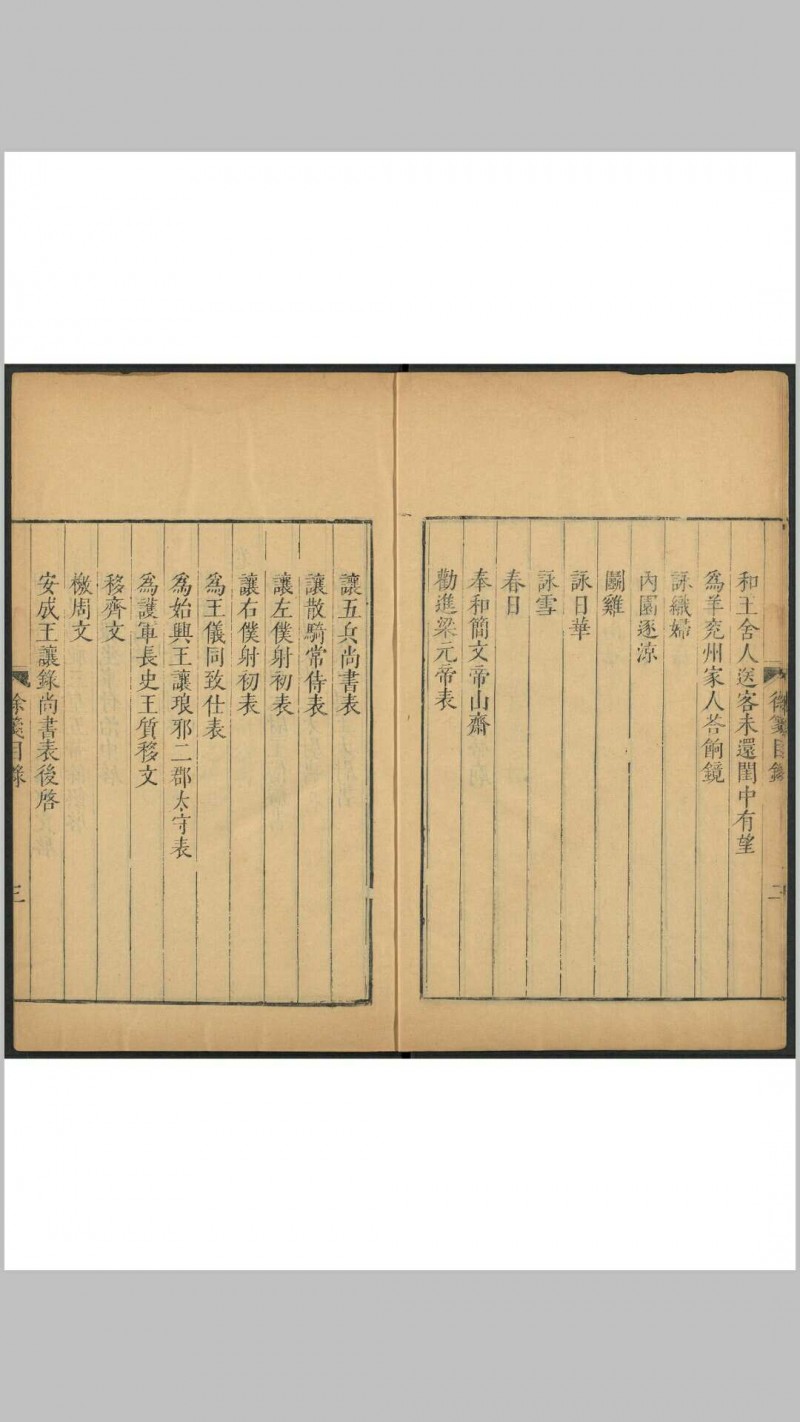 徐箋目錄
二
和王舍人送客未還閨中有望
爲羊兖州家人荅餉鏡
詠織婦
內園逐涼
鬭雞
詠日華
詠雪
春日
奉和簡文帝山齋
勸進梁元帝表
讓五兵尚書表
讓散騎常侍表
讓左僕射初表
讓右僕射初表
爲王儀同致仕表
爲始興王讓琅邪二郡太守表
爲護軍長史王質移文
移齊文
檄周文
安成王讓錄尚書表後啓
徐箋目錄
三